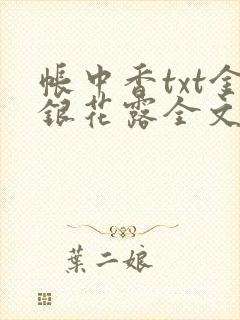 帳中香txt金
銀花露全文
葉二娘